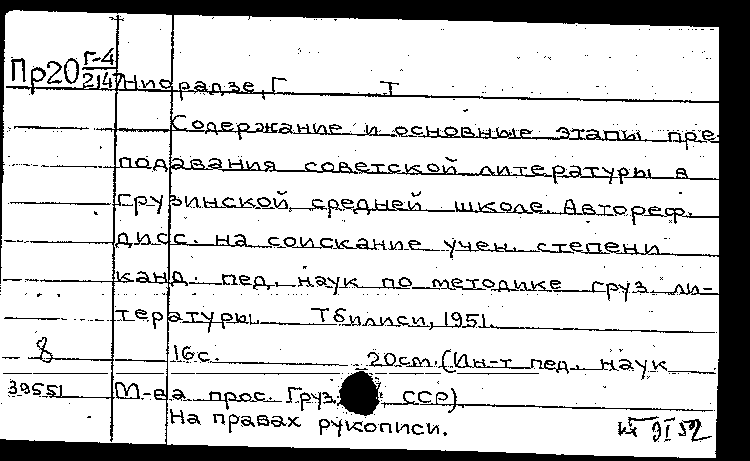 Пр20 Г-4
2147 Ниорадзе, Г Т
Содержание и основные этапы пре
подавания советской литературы в
грузинской средней школе. Автореф.
дисс. на соискание учен. степени
канд. пед. наук по методике груз. ли-
тературы. Тбилиси, 1951.
8 16с. 20см. (Ин-т пед. наук
39551 М-ва прос. Груз. ССР)
На правах рукописи.